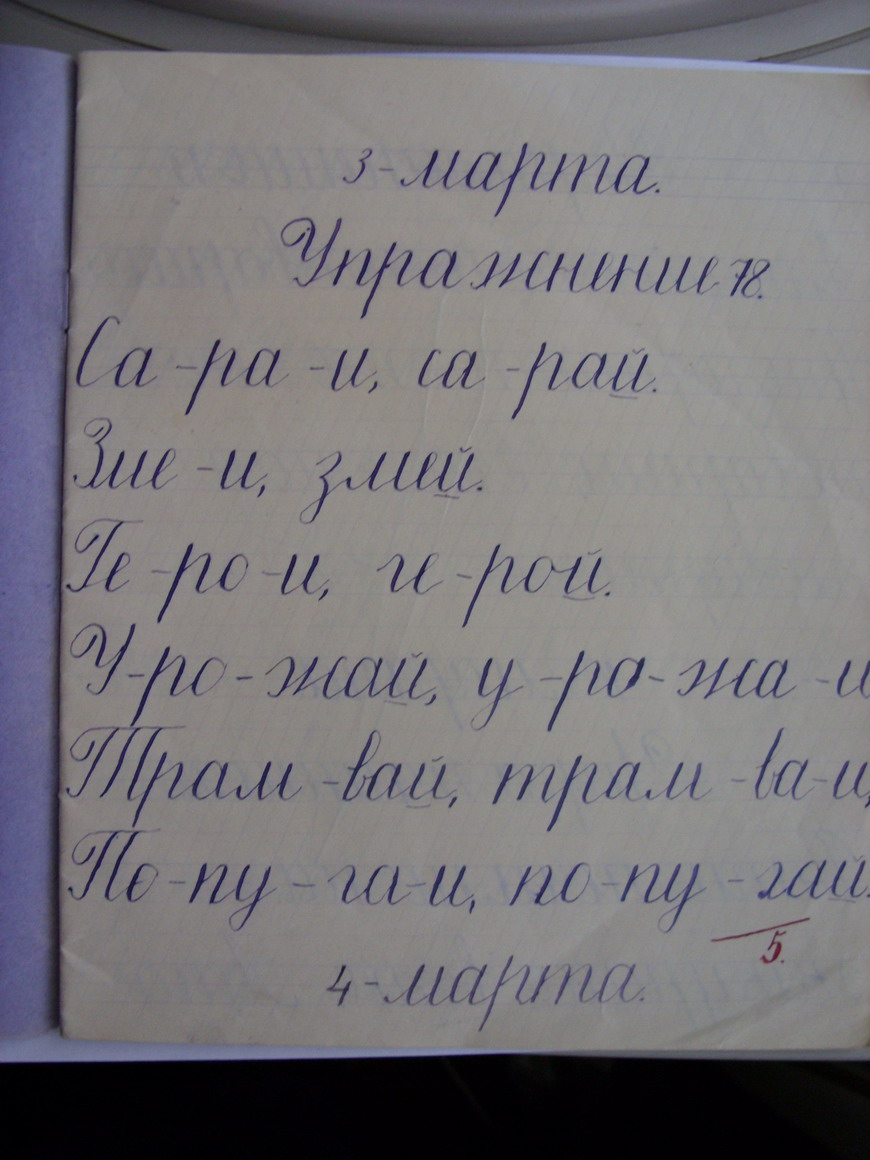 3-марта.
Упражнение 78.
Са-ра-и, са-рай.
Зме-и, змей.
Ге-ро-и, ге-рой.
У-ро-жай, у-ро-жа-и
Трам-вай, трам-ва-и,
По-пу-га-и, по-пу-гай.
5.
4-марта.